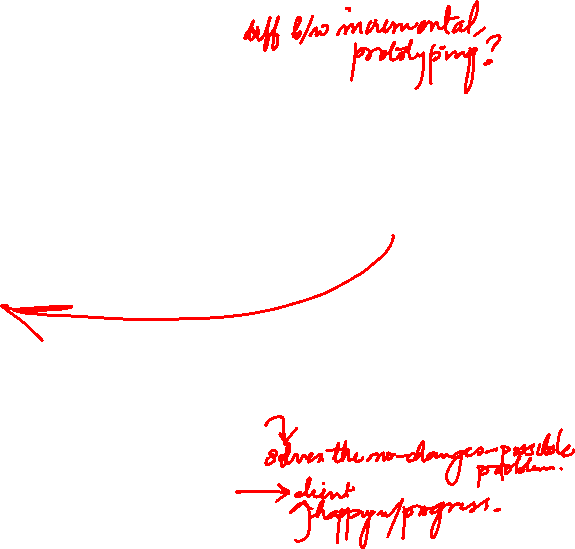 diff b/w incremental,
prototyping?
solves the no-changes-possible
problem.
client
happy w/progress.